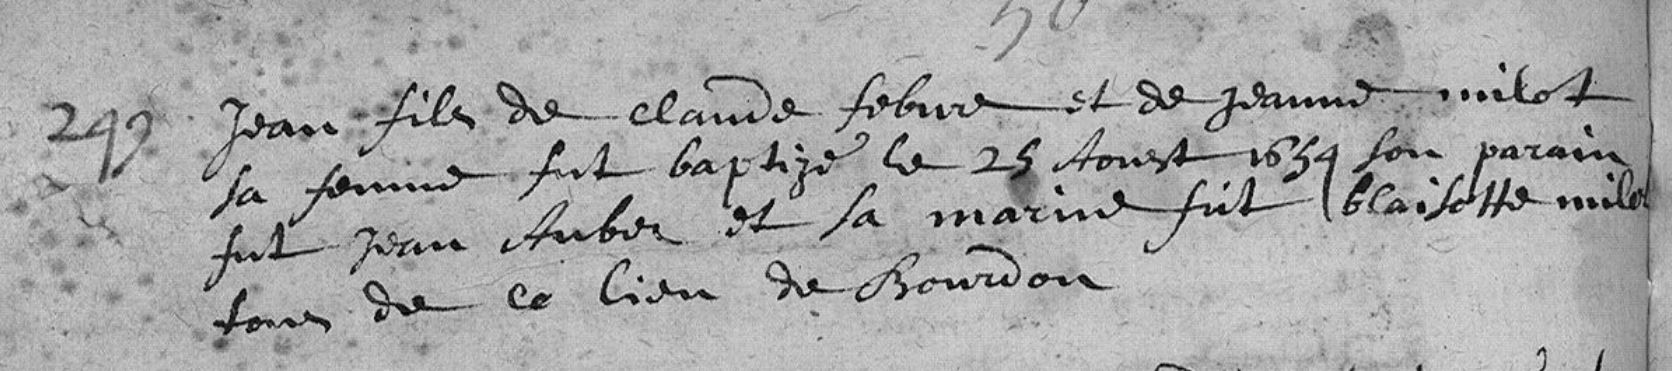 50
249 Jean fils de claude febure et de jeanne milot
sa femme fut baptizé le 25 Aoust 1654 son parain
fut jean Auber et sa marine fut blaisotte milot
tous de ce lieu de Bourdon